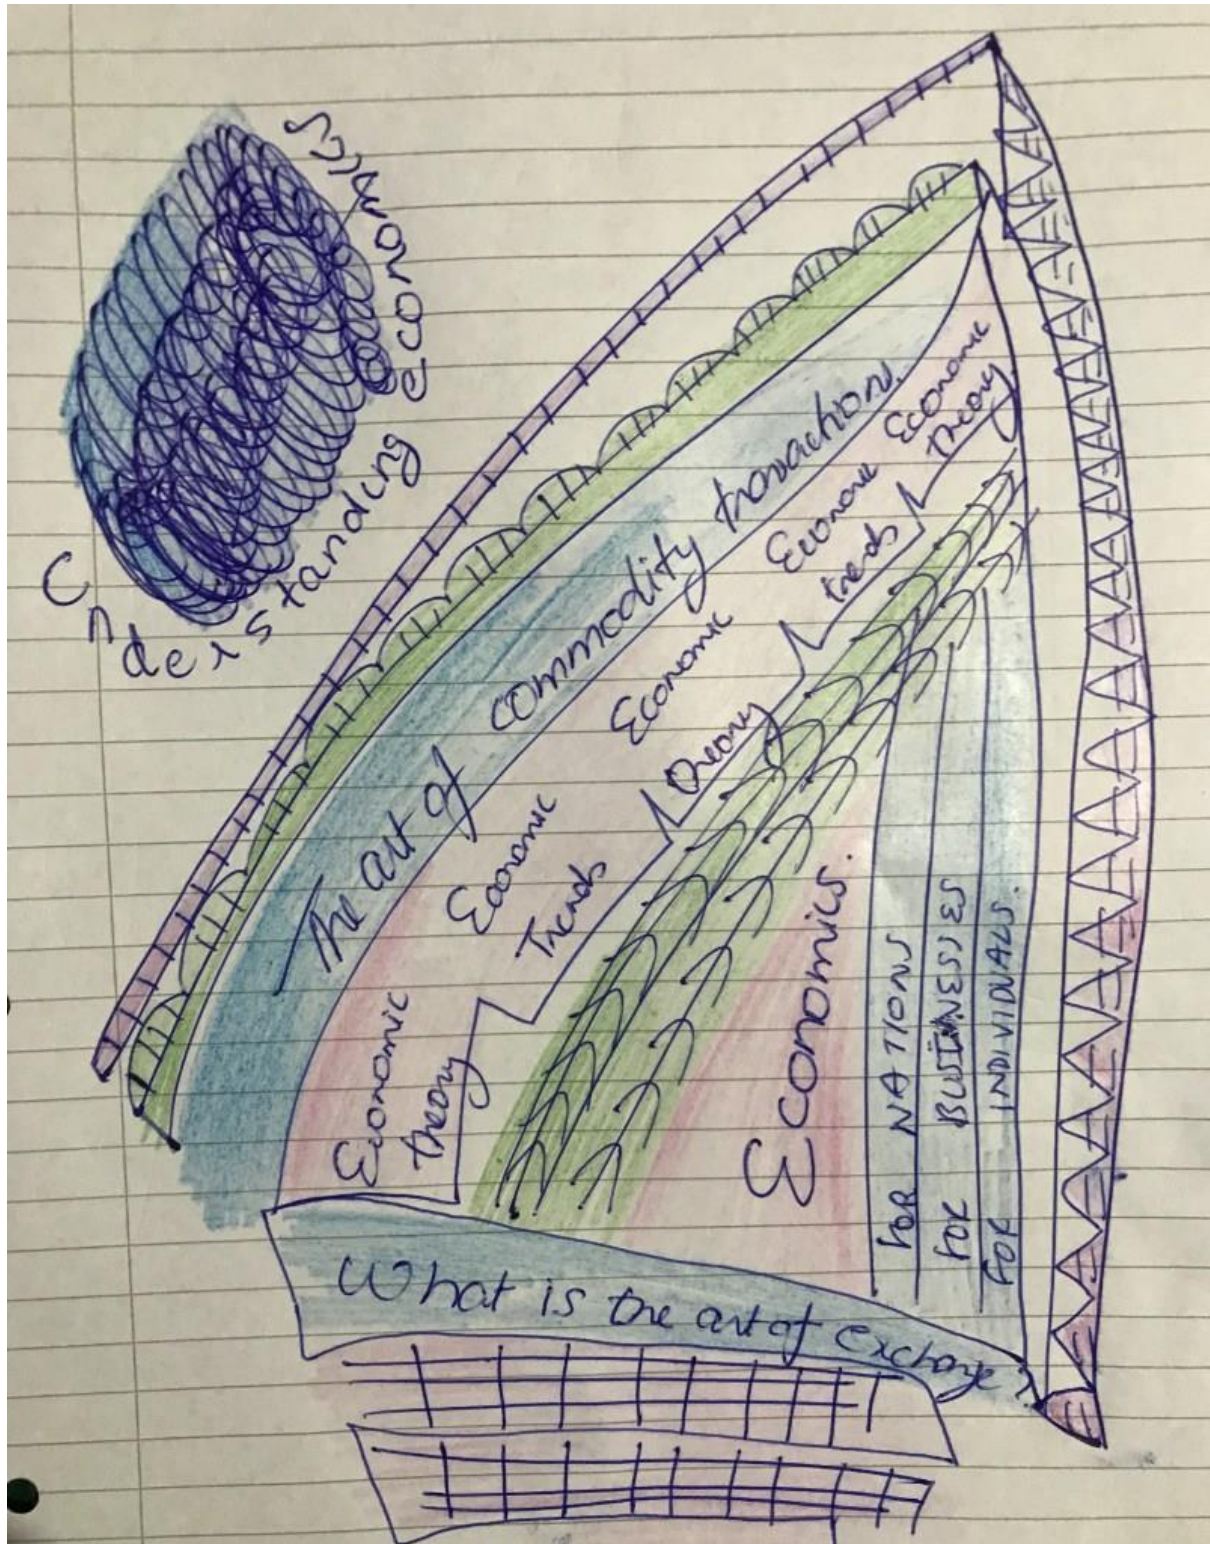 Understanding
economics
The art of commodity transactions.
Economic
theory
Economic
Trends
Economic
theory
Economic
trends
Economic
theory
Economics.
FOR NATIONS
FOR BUSINESSES
FOR INDIVIDUALS.
What is the art of exchange?